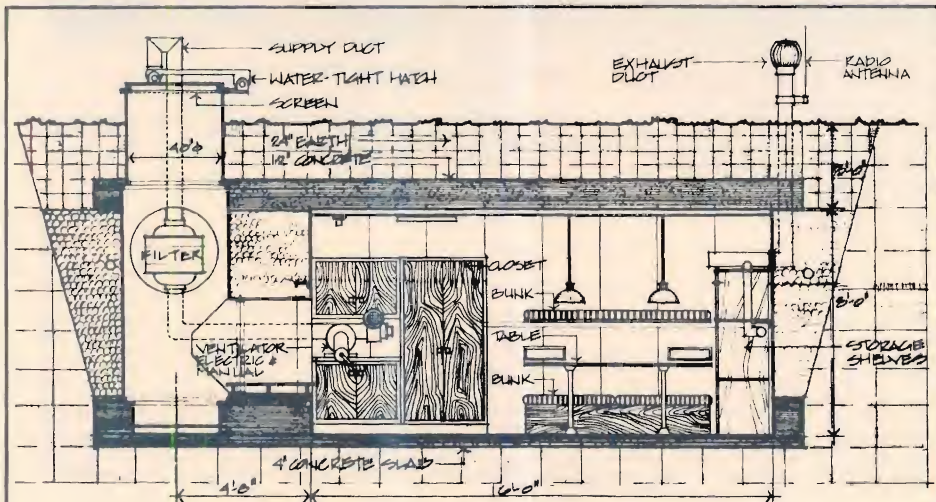 SUPPLY DUCT
WATER-TIGHT HATCH
SCREEN
EXHAUST
DUCT
RADIO
ANTENNA
24" EARTH
12" CONCRETE
FILTER
CLOSET
BUNK
TABLE
VENTILATOR
ELECTRIC &
MANUAL
BUNK
8'-0"
STORAGE
SHELVES
4" CONCRETE SLAB
4'-8"
16'-0"